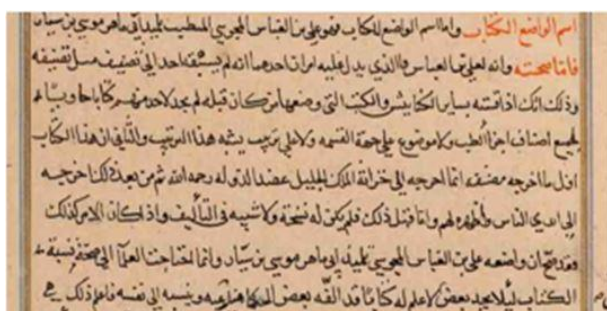 اسم الواضع الكتاب واما اسم الواضع للكتاب فهو علي بن العباس المجوسي المتطبب تلميذ ابي ماهر موسى بن سيار
فاما صحته وانه لعلي بن العباس فالذي يدل عليه امران احدهما انه لم يسبقه احد الى تصنيف مثل تصنيفه
وذلك انك اذا قسته بساير الكنانيش والكتب التي وضعها من كان قبله لم يجد لاحد منهم كتابا حاويا
لجميع اصناف اجزا الطب ولا موضوع على جهة القسمه ولا على ترتيب يشبه هذا الترتيب والثاني ان هذا الكتاب
اول ما اخرجه مصنفه انما اخرجه الى خزانة الملك الجليل عضد الدوله رحمه الله ثم من بعد ذلك اخرجه
الى ايدي الناس واظهره لهم واما قبل ذلك فلم يكن له نسخة ولا شبيه في التأليف واذ كان الامر كذلك
فقد صح ان واضعه علي بن العباس المجوسي تلميذ ابي ماهر موسى بن سيار وانما احتاجت العلما الى صحة نسبة
الكتاب ليلا يجد بعض من لا علم له كتابا قد الفه بعض العلما فيدعيه وينسبه الى نفسه فاعلم ذلك